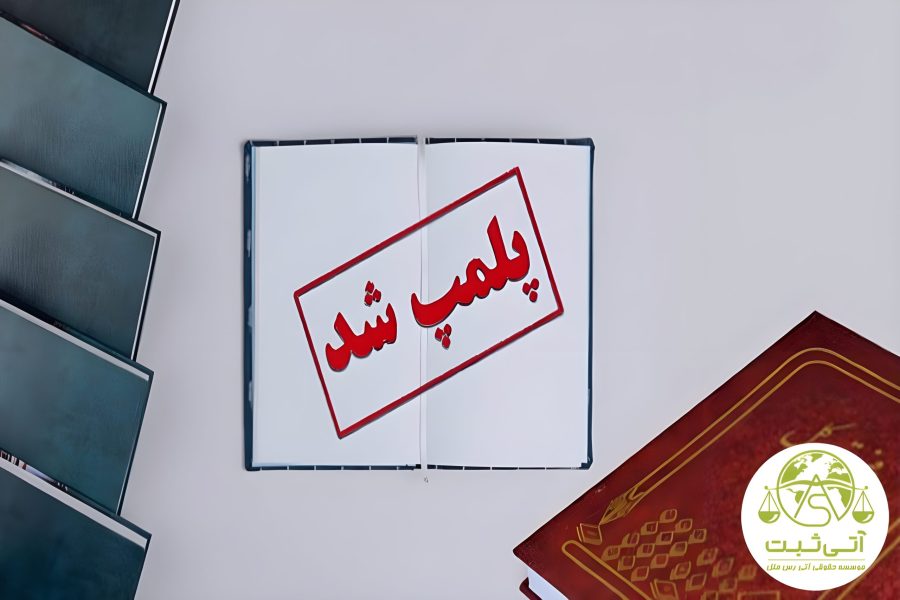 پلمپ شد
آتی ثبت
موسسه حقوقی آتی رس ملل